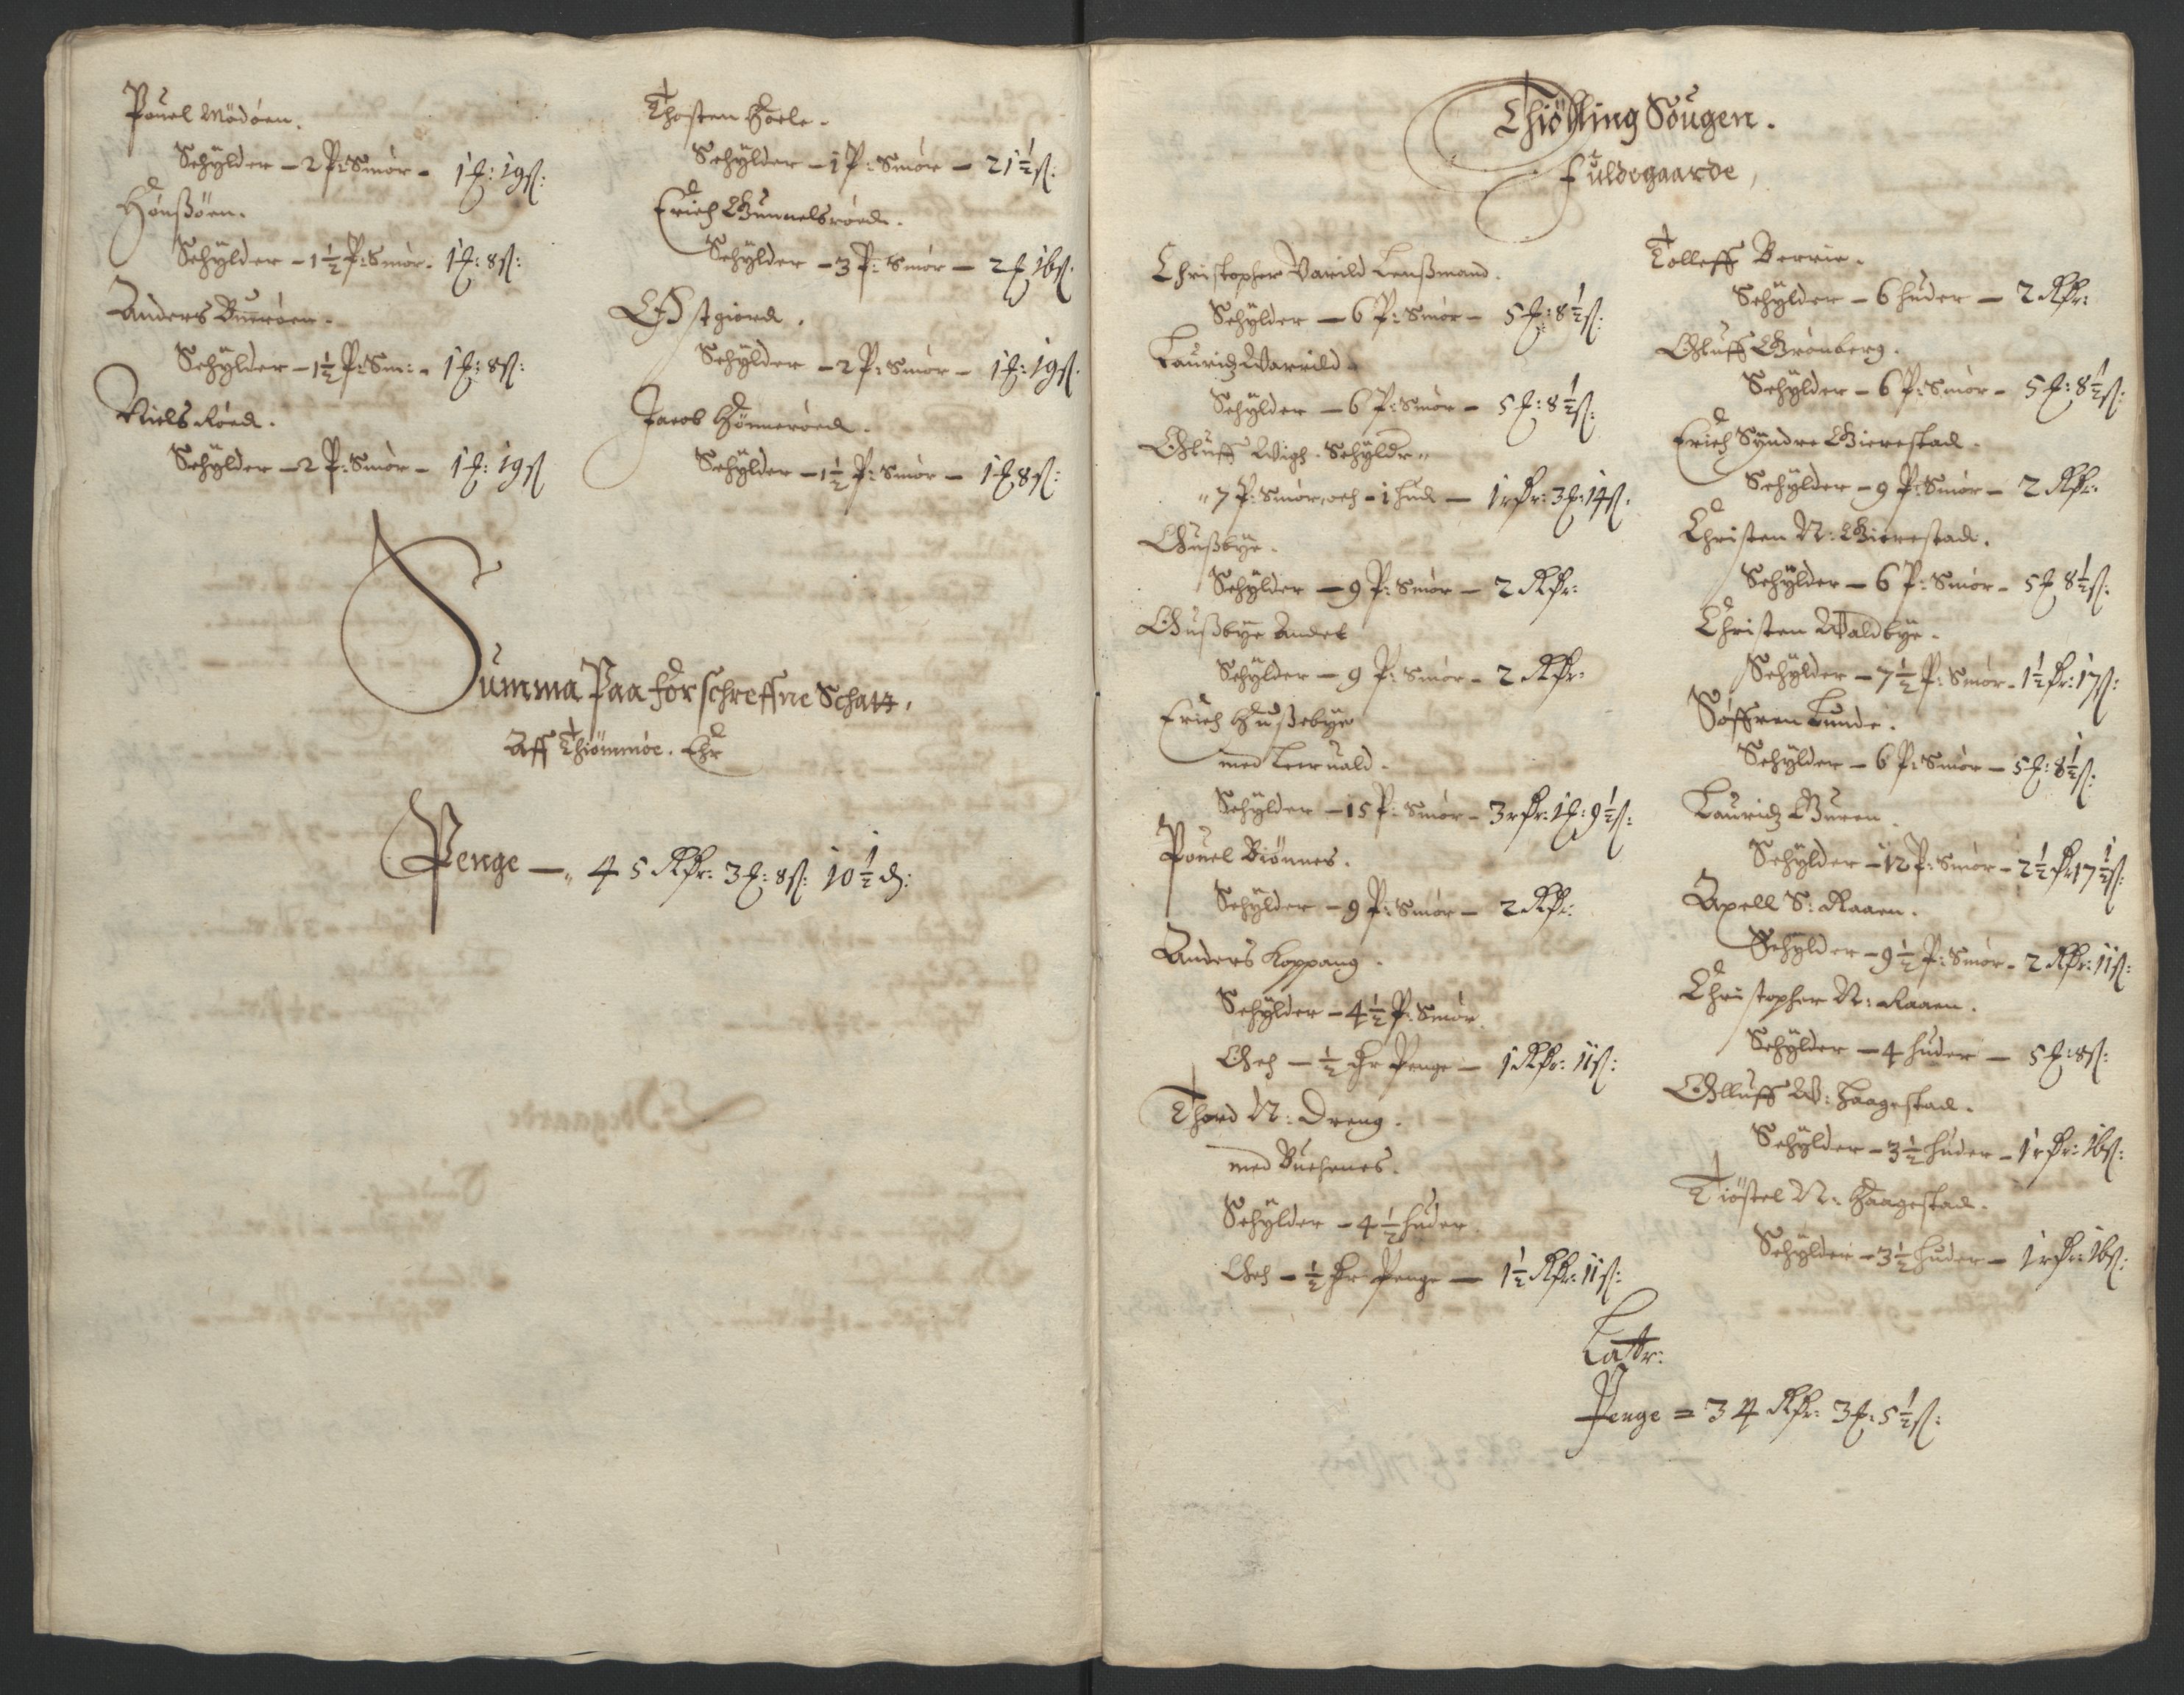 Pouel Mödöen.
Schÿlder – 2 P: Smör – 1 f: 19 ß:
Hönßöen.
Schÿlder – 1½ P: Smör – 1 f: 8 ß:
Anders Bueröen.
Schÿlder – 1½ P: Sm: – 1 f: 8 ß:
Niels Röed.
Schÿlder – 2 P: Smör – 1 f: 19 ß
Thosten Hoele.
Schÿlder – 1 P: Smör – 21½ ß:
Erich Gunnelsröed.
Schÿlder – 3 P: Smör – 2 f 16 ß.
Østgiord.
Schÿlder – 2 P: Smör – 1 f: 19 ß.
Jacob Hönneröed.
Schÿlder – 1½ P: Smör – 1 f 8 ß:
Summa Paa forschreffne Schatt,
Aff Thiömmöe. Ehr
Penge –„ 45 Rdr: 3 f: 8 ß: 10½ d:
Thiölling Sougen.
Fuldegaarde,
Christopher Varild Lenßmand.
Schÿlder – 6 P: Smör – 5 f: 8½ ß:
Lauridz Varrild.
Schÿlder – 6 P: Smör – 5 f: 8½ ß:
Oluff Wigh. Schÿldr„
„7 P: Smör, och – 1 hud – 1 rdr: 3 f: 14 ß.
Gußbÿe.
Schÿlder – 9 P: Smör – 2 Rdr:
Gußbÿe Andet
Schÿlder – 9 P: Smör – 2 Rdr:
Erich Hußebÿe
med Leeruald.
Schÿlder – 15 P: Smör – 3 rdr: 1 f: 9½ ß:
Pouel Biönnes.
Schÿlder – 9 P: Smör – 2 Rdr:
Anders Koppang.
Schÿlder – 4½ P: Smör.
Och – ½ dr Penge – 1 Rdr: 11 ß:
Thord N: Dreng.
med Buchenes.
Schÿlder – 4½ huder.
Och – ½ dr Penge – 1½ Rdr: 11 ß:
Tolleff Berrie.
Schÿlder – 6 huder – 2 Rdr:
Oluff Grönberg.
Schÿlder – 6 P: Smör – 5 f: 8½ ß:
Erich Syndre Gierestad.
Schÿlder – 9 P: Smör – 2 Rdr:
Christen N: Gierestad.
Schÿlder – 6 P: Smör – 5 f 8½ ß:
Christen Waldbÿe.
Schÿlder – 7½ P: Smör – 1½ dr: 17 ß:
Söffren Lunde.
Schÿlder – 6 P: Smör – 5 f: 8½ ß:
Lauridz Guren.
Schÿlder – 12 P: Smör – 2½ dr 17½ ß:
Axell S: Raaen.
Schÿlder – 9½ P: Smör – 2 Rdr: 11 ß:
Christopher N: Raaen.
Schÿlder – 4 huder – 5 f: 8 ß:
Olluff W: Haagestad.
Schÿlder – 3½ huder – 1 rdr: 16 ß:
Tiöstel N: Haagestad.
Schÿlder – 3½ huder – 1 rdr: 16 ß:
Lattr:
Penge = 34 Rdr: 3 f: 5½ ß: